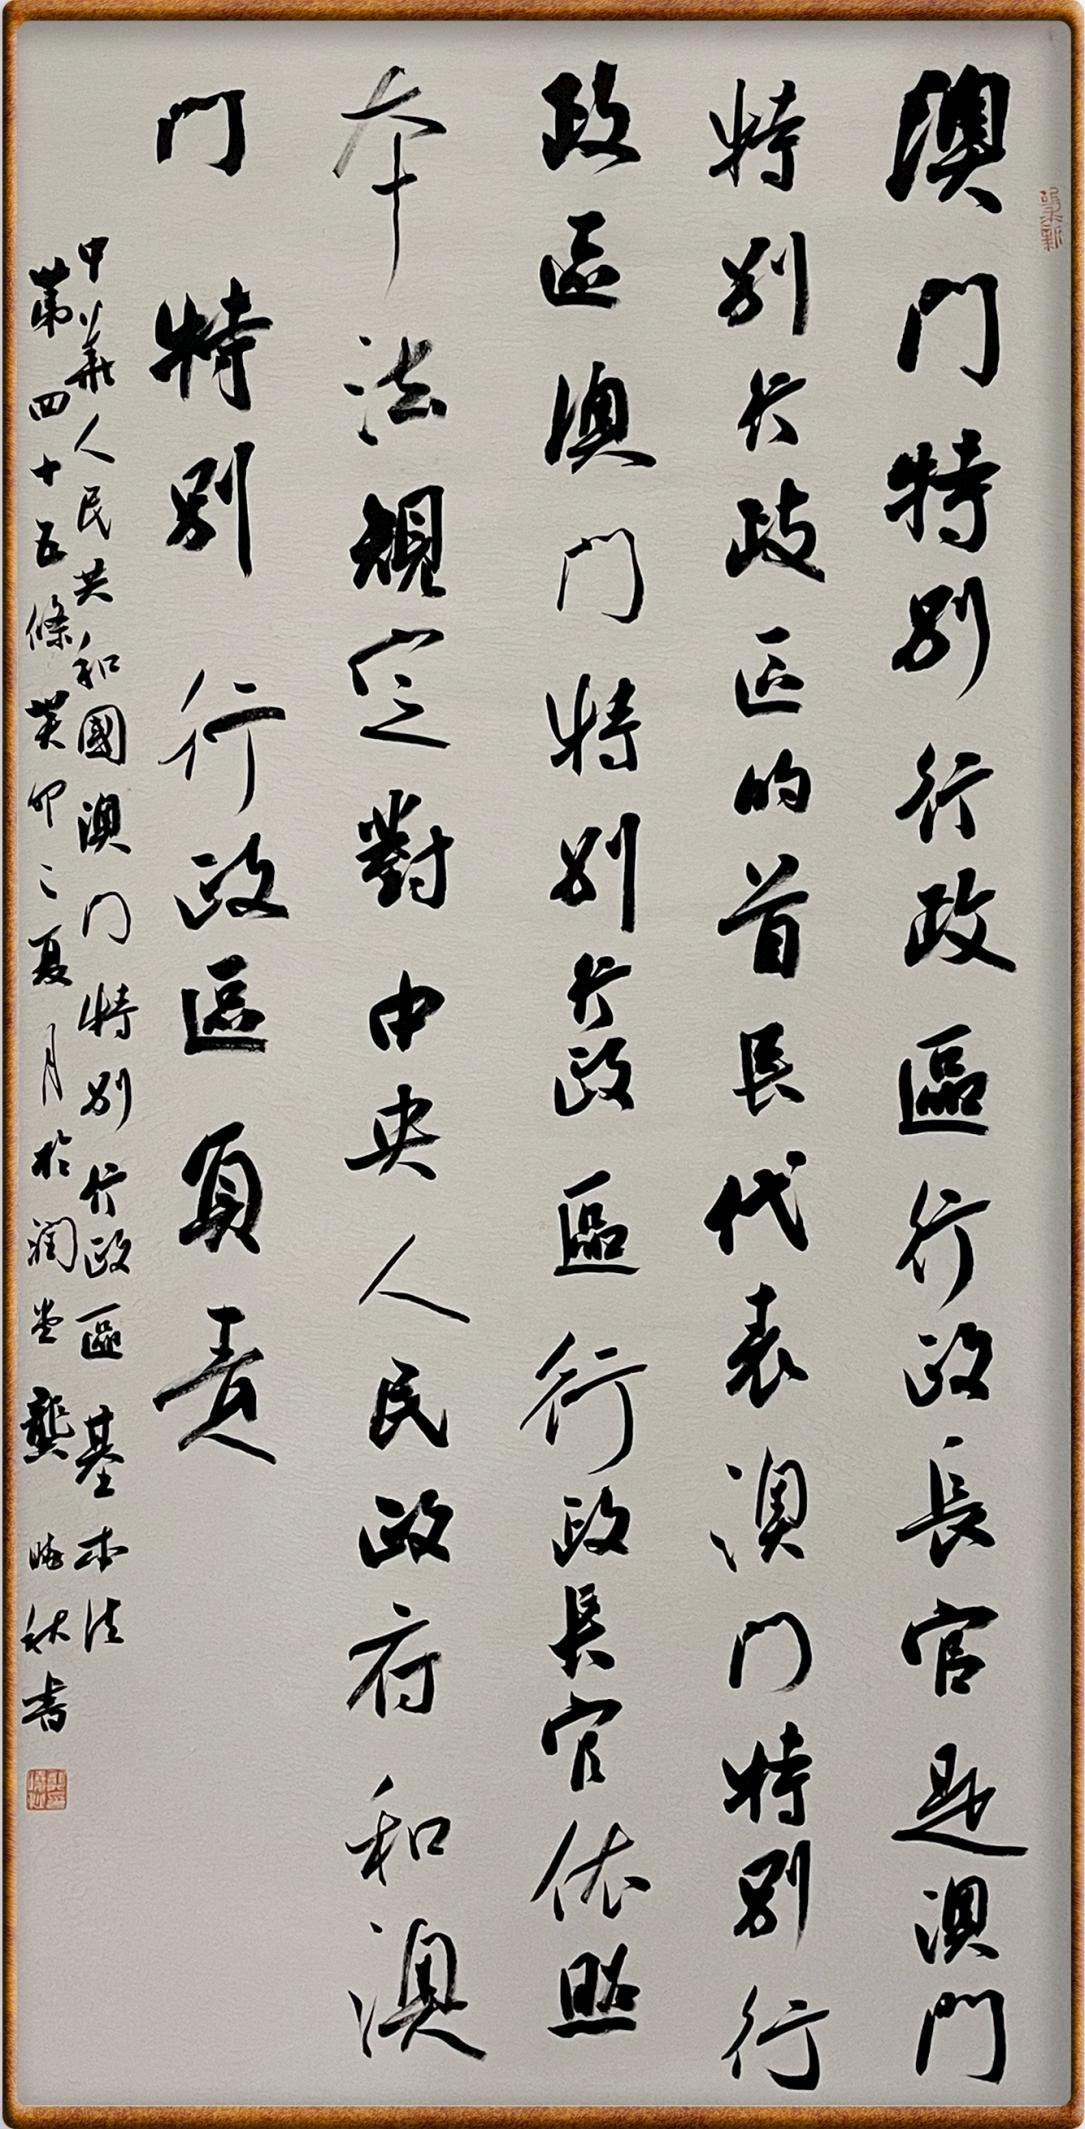 澳門特別行政區行政長官是澳門
特別行政区的首長代表澳門特別行
政區澳門特別行政區行政長官依照
本法規定對中央人民政府和澳
門特別行政區負責
中華人民共和國澳门特別行政區基本法
第四十五條癸卯之夏月於潤堂龔晓秋書